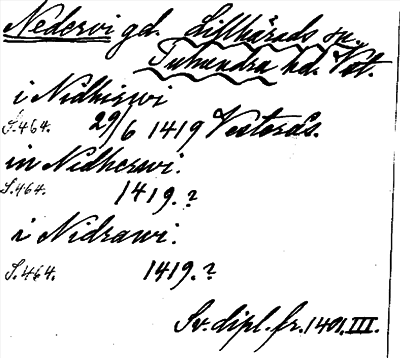 Nedervi gd. Lillhärads sn.
Tuhundra hd. Vst.
i Nidhirwi
S.464. 29/6 1419 Vesterås.
in Nidherwi.
S.464. 1419.?
i Nidrawi.
S.464. 1419.?
Sv. dipl. fr. 1401. III.